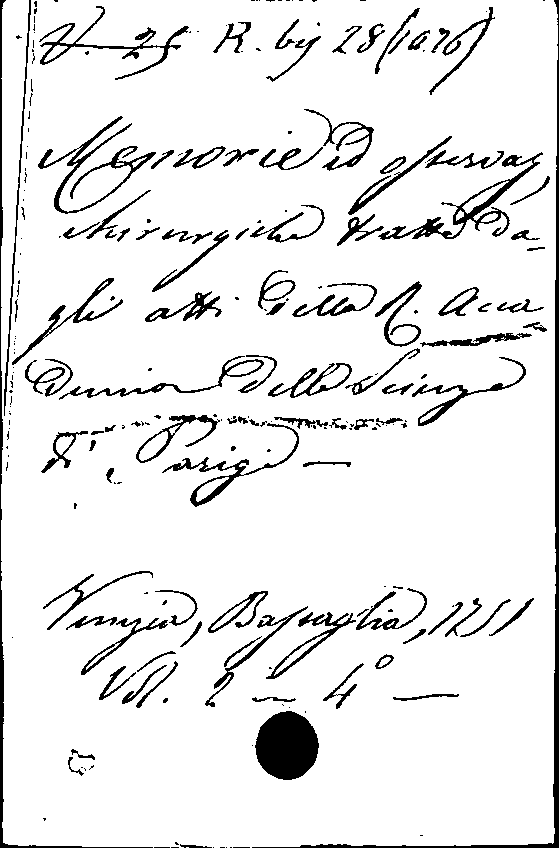 V. 25 R. bij 28 (10.76)
Memorie ed osservaz,
chirurgiche tratte da-
gli atti della R. Acca
demia delle Scienze
di Parigi —
Venezia, Bassaglia, 1751
Vol. 2 — 4° —